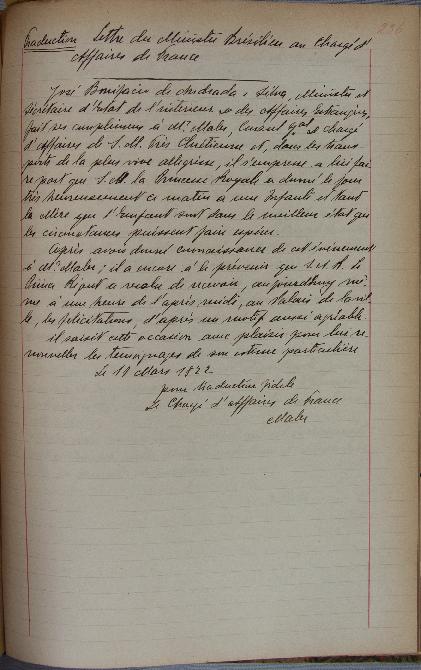 236
Traduction Lettre du Ministre Brésilien au Chargé d'
Affaires de France
José Bonifacio de Andrada e Silva, Ministre et
Sécrétaire d'Etat de l'intérieur et des Affaires Etrangères,
fait ses compliments à Mr. Maler, Consul Gal et chargé
d'affaires de S. M. Très Chrétienne et, dans les trans
ports de la plus vive allégresse, il s'empresse à lui fai
re part que S. A. la Princesse Royale a donné le jour
très heureusement ce matin à une Infante et tant
la Mère que l'Enfant sont dans le meilleur état que
les circonstances puissent faire espérer.
Après avoir donné connaissance de cet évènement
à Mr. Maler; il a encore à le prévenir que S. A. R. le
Prince Régent a résolu de recevoir, aujourdhuy mê-
me à une heure de l'après midi, au Palais de la vil
le, les félicitations, d'après un motif aussi agréable.
il saisit cette occasion avec plaisir pour lui re-
nouveller les témoignages de son estime particulière
Le 11 Mars 1822
pour traduction fidèle
Le Chargé d'affaires de France
Maler